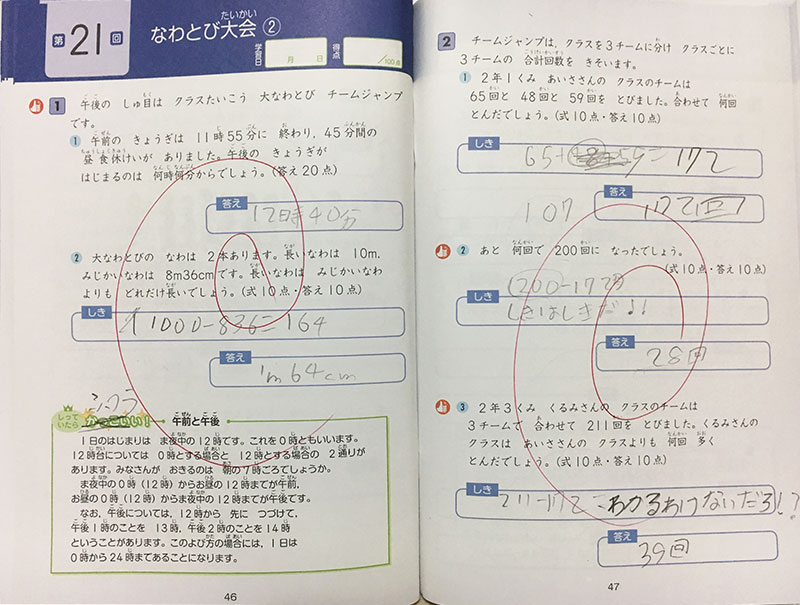 第21回
なわとび大会②
たいかい
学習日 月 日
得点 /100点
1 午後の しゅ目は クラスたいこう 大なわとび チームジャンプ
です。
1 午前の きょうぎは 11時55分に 終わり，45分間の
昼食休けいが ありました。午後の きょうぎが
はじまるのは 何時何分からでしょう。(答え20点)
答え
12時40分
2 大なわとびの なわは 2本あります。長いなわは 10m，
みじかいなわは 8m36cmです。長いなわは みじかいなわ
よりも どれだけ長いでしょう。(式10点・答え10点)
しき
1000-836=164
答え
1m64cm
しって
いたら
かっこいい! 午前と午後
1日のはじまりは ま夜中の12時です。これを0時ともいいます。
12時台については 0時とする場合と 12時とする場合の 2通りが
あります。みなさんが おきるのは 朝の7時ごろでしょうか。
ま夜中の0時(12時)からお昼の12時までが午前，
お昼の0時(12時)からま夜中の12時までが午後です。
なお，午後については，12時から 先に つづけて，
午後1時のことを 13時，午後2時のことを 14時
ということがあります。このよび方の場合には，1日は
0時から24時まであることになります。
46
2 チームジャンプは，クラスを3チームに分け クラスごとに
3チームの 合計回数を きそいます。
1 2年1くみ あいささんの クラスのチームは
65回と 48回と 59回を とびました。合わせて 何回
とんだでしょう。(式10点・答え10点)
しき
65+48+59=172
107
答え
172回
2 あと 何回で 200回に なったでしょう。
(式10点・答え10点)
しき
(200-172)
しきはしきだ♪!
答え
28回
3 2年3くみ くるみさんの クラスのチームは
3チームで 合わせて 211回を とびました。くるみさんの
クラスは あいささんの クラスよりも 何回 多く
とんだでしょう。(式10点・答え10点)
しき
211-172=わかるわけないだろ!?
答え
39回
47